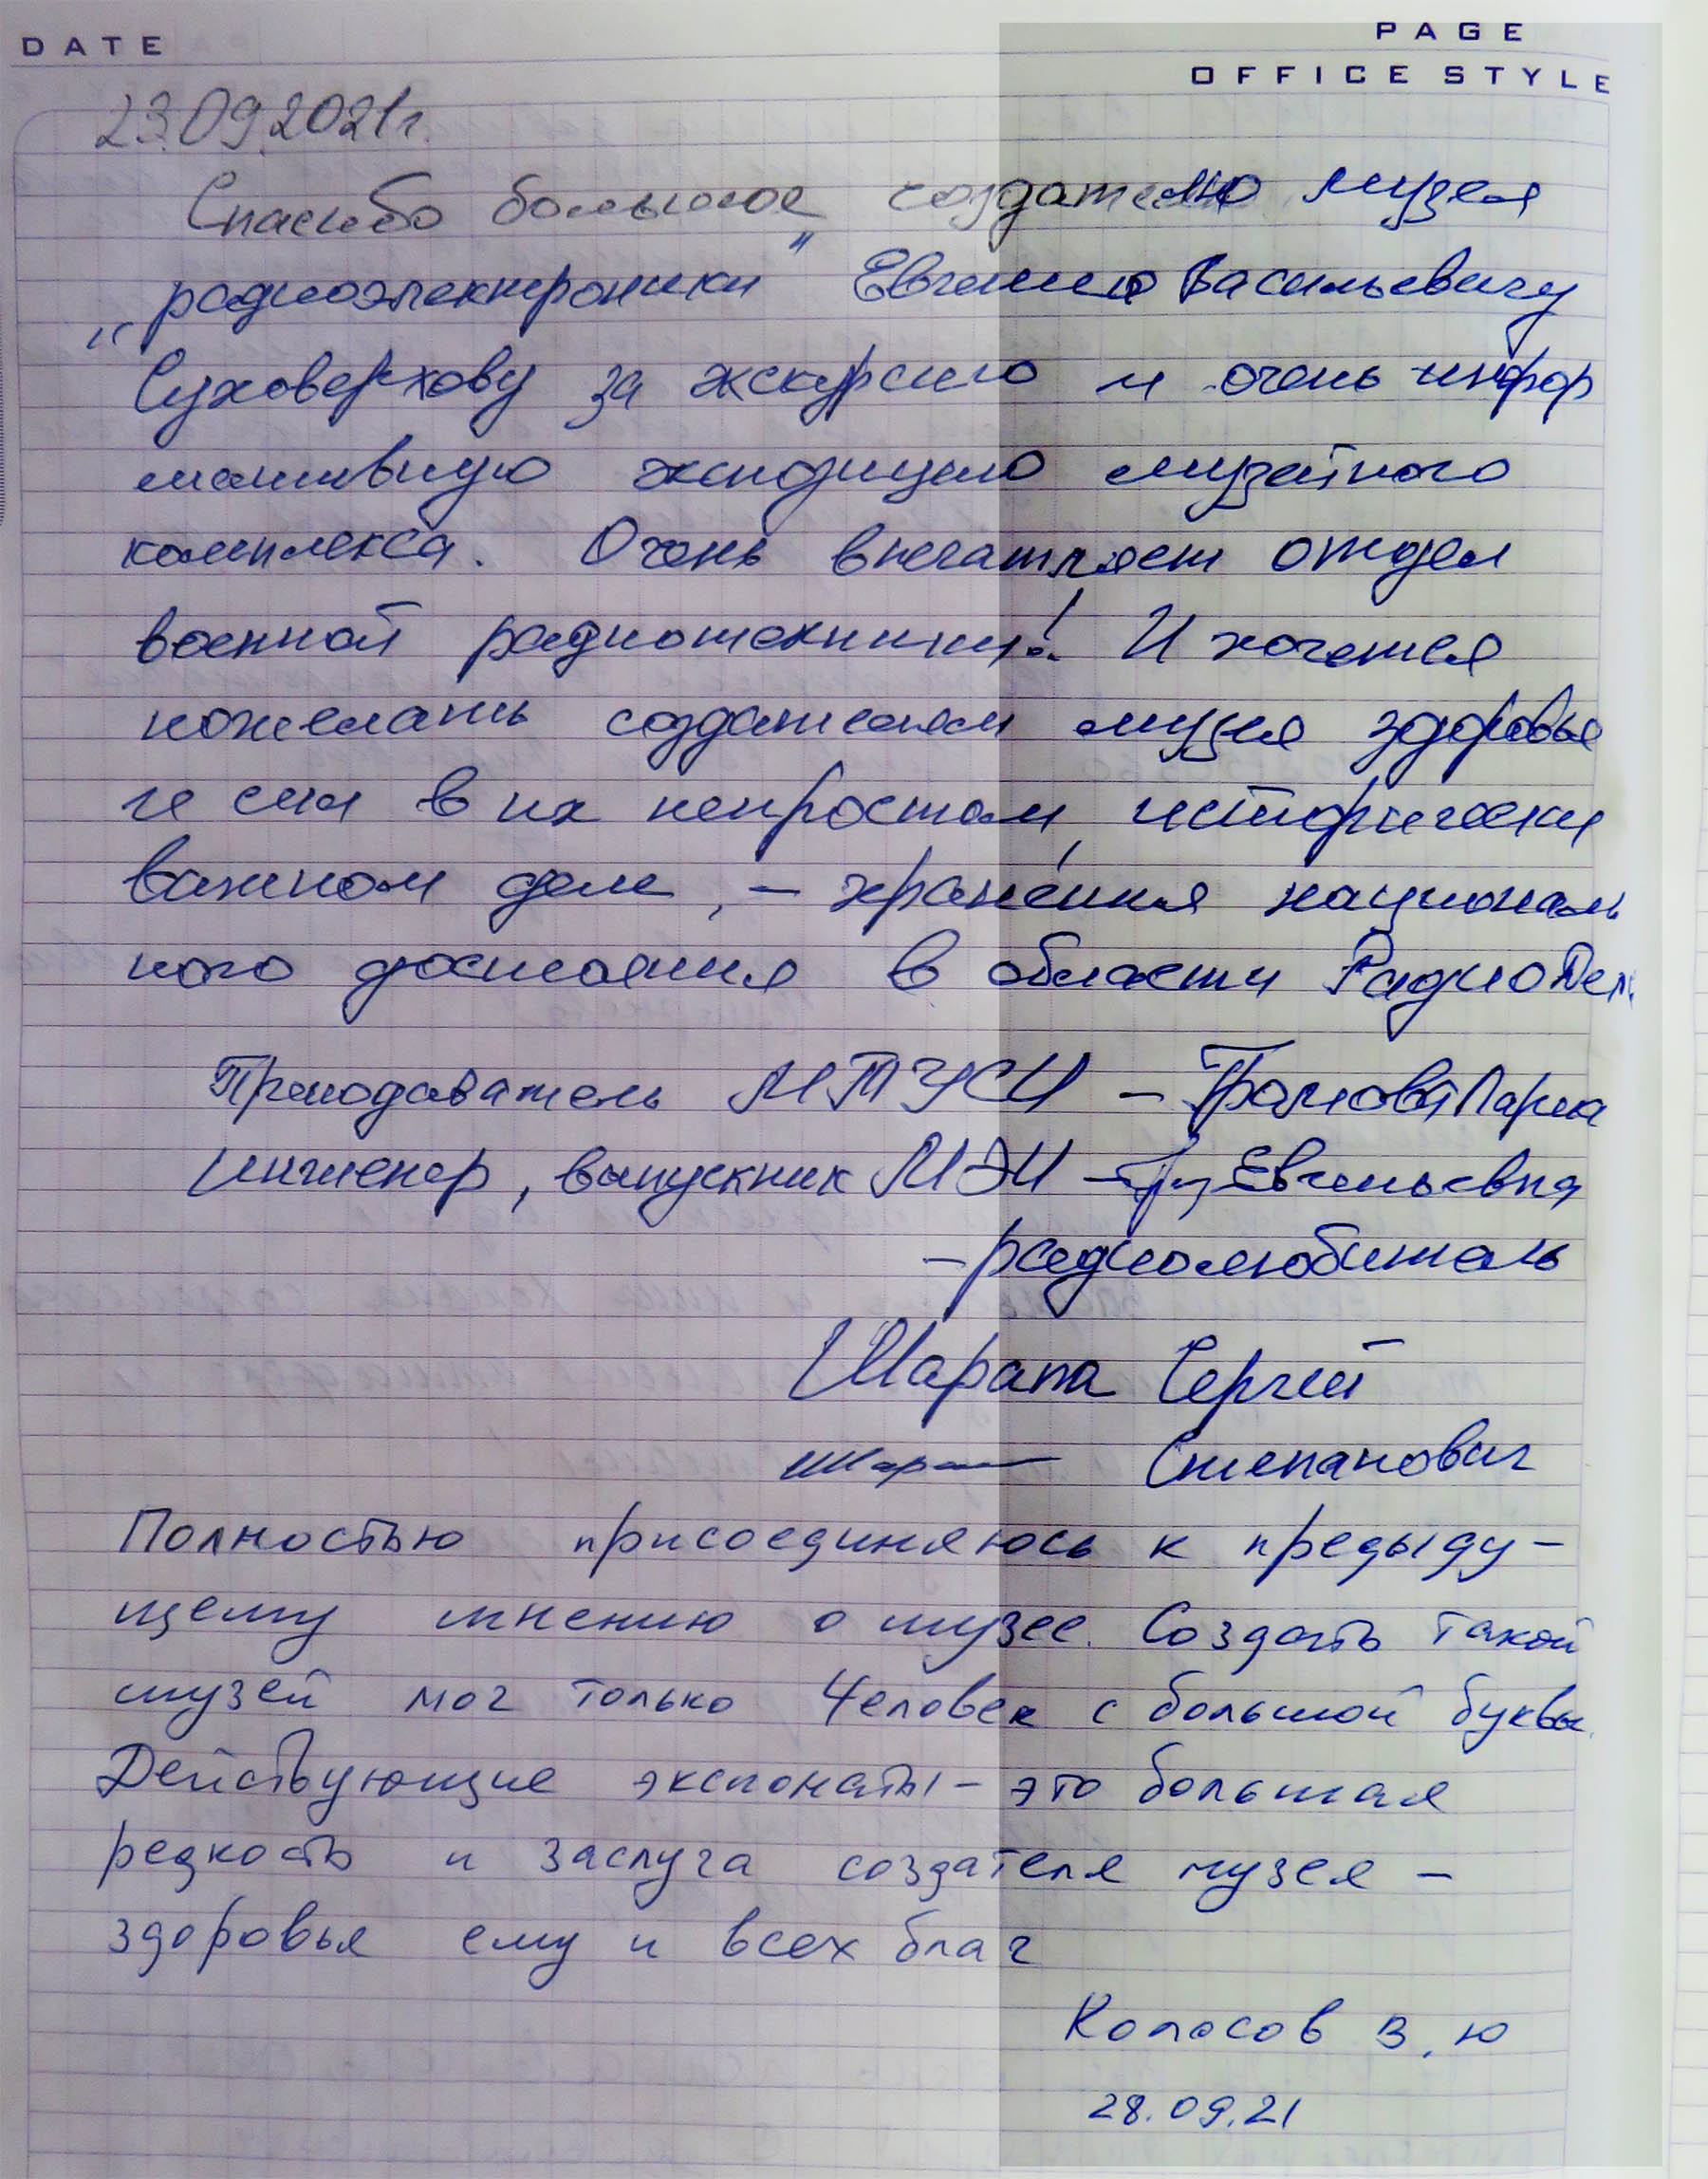 DATE
PAGE
OFFICE STYLE
23.09.2021г.
Спасибо большое создателю музея
„радиоэлектроники" Евгению Васильевичу
Суховерхову за экскурсию и очень инфор
мативную экспозицию музейного
комплекса. Очень впечатляет отдел
военной радиотехники! И хочется
пожелать создателям музея здоровья
и сил в их непростом, исторически
важном деле, – хранения националь
ного достояния в области РадиоДел
Преподаватель МТУСИ – Лариса
Инженер, выпускник МЭИ – Евгеньевна
– радиолюбитель
Шарапа Сергей
Степанович
Полностью присоединяюсь к предыду–
щему мнению о музее. Создать такой
музей мог только Человек с большой буквы.
Действующие экспонаты – это большая
редкость и заслуга создателя музея –
здоровья ему и всех благ
Колосов В.Ю
28.09.21